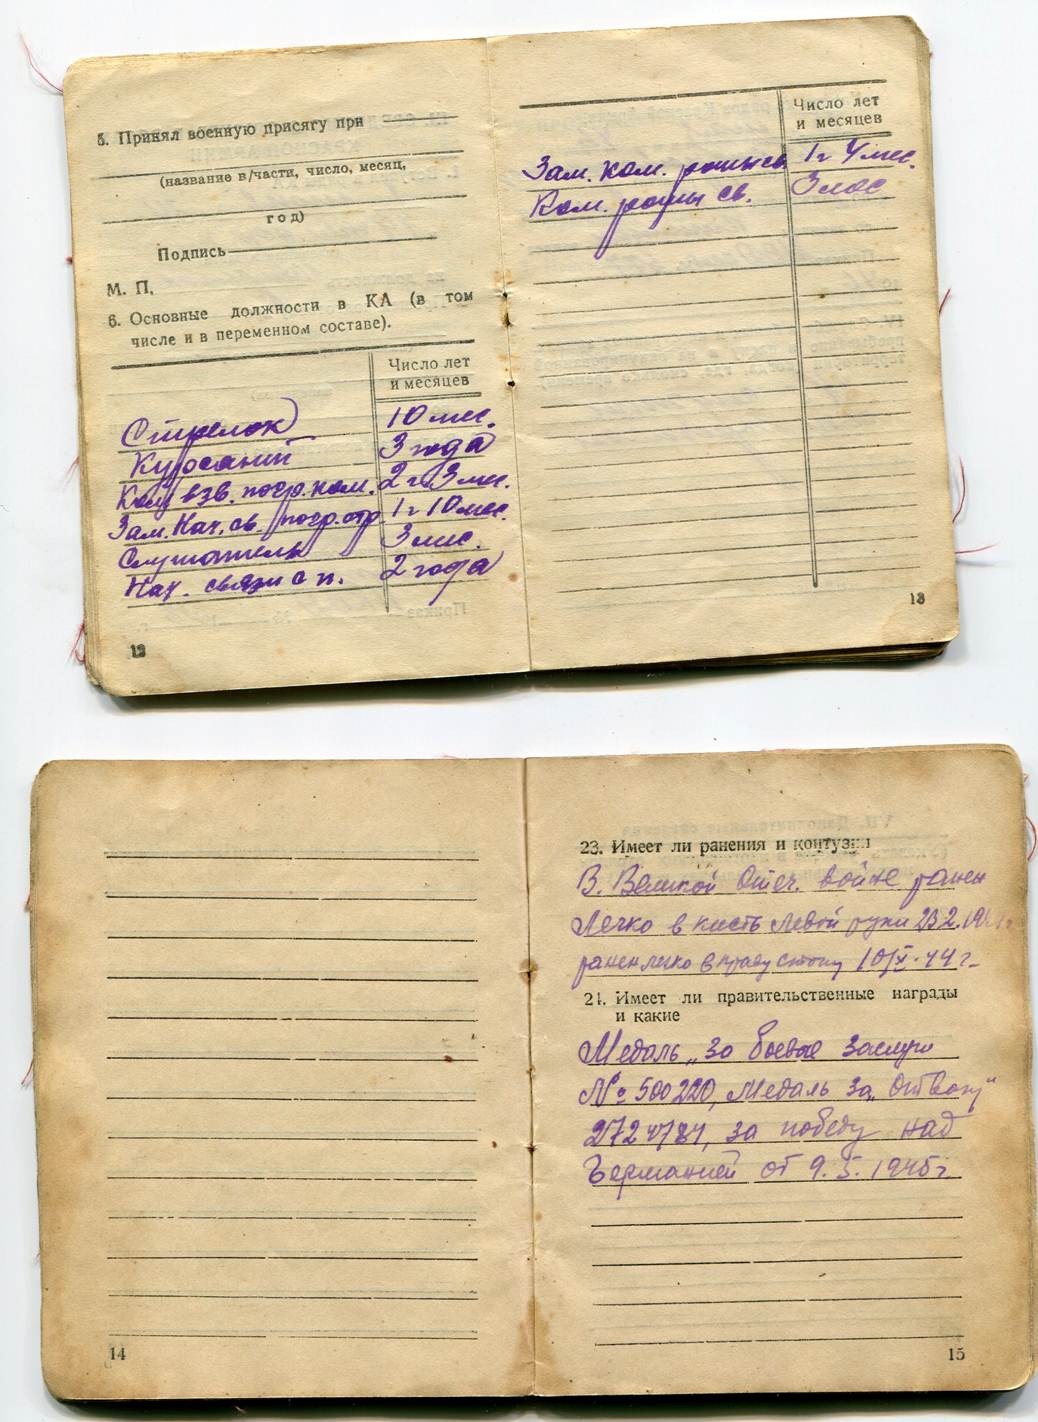 5. Принял военную присягу при
(название в/части, число, месяц,
год)
Подпись
М. П.
6. Основные должности в КА (в том
числе и в переменном составе).
Число лет
и месяцев
Стрелок 10 мес.
Курсант 3 года
Ком. взв. погр. ком. 2 г. 3 мес.
Зам. Нач. св. погр. отр. 1 г 10 мес.
Слушатель 3 мес.
Нач. связи с п. 2 года
12
Число лет
и месяцев
Зам. ком. роты св. 1 г 4 мес.
Ком. роты св. 3 мес
13
14
23. Имеет ли ранения и контузии
В. Великой Отеч. войне ранен
Легко в кисть левой руки 23.2.
ранен легко в праву стопу 10/X-44 г.
24. Имеет ли правительственные награды
и какие
Медаль „За боевые заслуги
№ 500220, Медаль за „Отвагу"
за победу над
Германией от 9.5.1945 г.
15